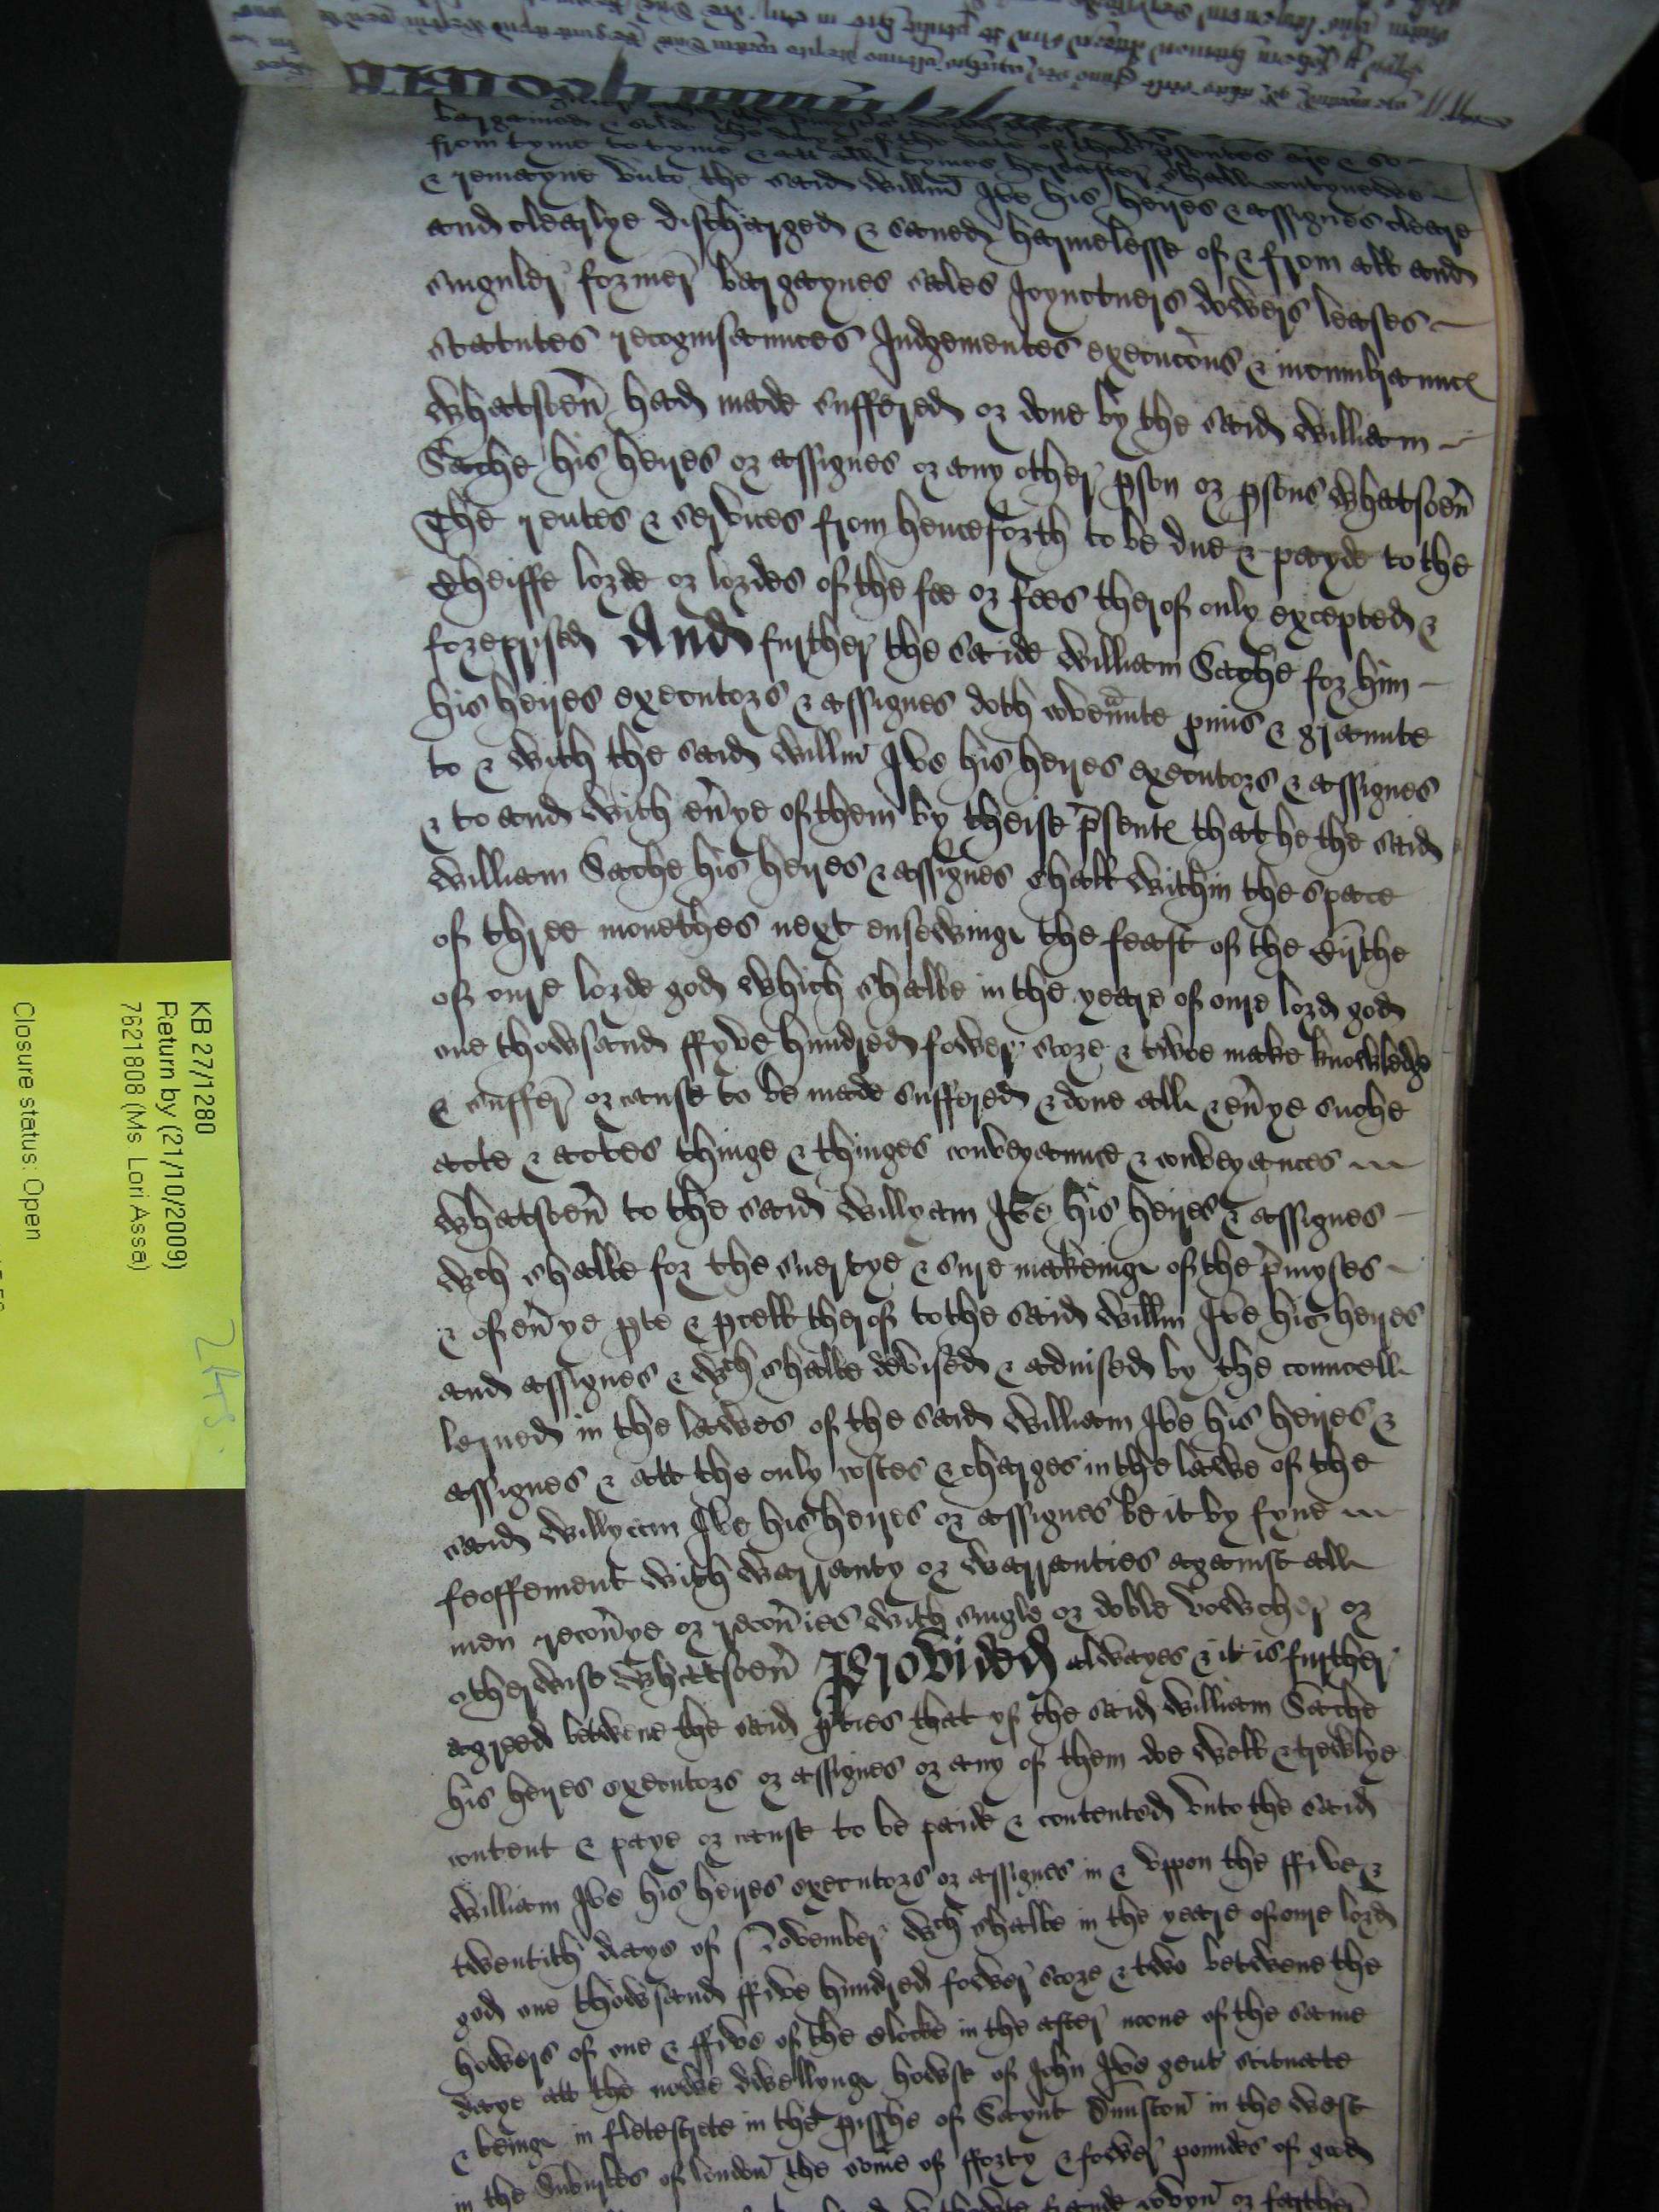 bargained & solde the daye of the date of these presentes are & so
from tyme to tyme & att all tymes hereafter shall contynewe
& remayne unto the said Willm Ive his heyres & assignes cleare
and clearlye discharged & saved harmelesse of & from all and
singuler former bargaynes sales Joynctuers dowers leases
statutes recognisaunces Judgementes execucons & incumbraunc
whatsoevr had made suffered or done by the said William
Sache his heyres or assignes or any other pson or psons whatsoevr
The rentes & services from henceforth to be due & payde to the
Cheiffe lorde or lordes of the fee or fees therof only excepted &
foreprised And further the saide William Sache for him
his heyres executors & assignes doth covennte pmis & graunte
to & with the said Willm Ive his heyres executors & assignes
& to and with evrye of them by theise psent that he the said
William Sache his heyres & assignes shall within the space
of three monethes next ensewinge the feast of the Birthe
of oure lorde god which shalbe in the yeare of oure lord god
one thowsand ffyve hundred fower score & twoe make knowledge
& suffer or cause to be made suffered & done all & evrye suche
acte & actes thinge & thinges conveyaunce & conveyances
whatsoevr to the said Willyam Ive his heyres & assignes
wch shalbe for the suertye & sure makeinge of the pmyses
& of evrye pte & pcell therof to the said Willm Ive his heyres
and assignes & wch shalbe devised & advised by the councell
lerned in the lawes of the said William Ive his heyres &
assignes & att the only costes & charges in the lawe of the
said Willyam Ive his heyres or assignes be it by fyne
feoffement with warranty or warranties against all
men recovrye or recovries with single or doble vowcher or
otherwise whattsoevr Provided alwayes & it is further
agreed betwene the said pties that yf the said William Sache
his heyres executors or assignes or any of them doe well & trewlye
content & paye or cause to be paide & contented unto the said
William Ive his heyres executors or assignes in & uppon the ffive &
twentith daye of November wch shalbe in the yeare of oure lord
god one thowsand ffive hundred fower score & two betwene the
howers of one & ffive of the clocke in the after noone of the same
daye att the nowe dwellynge howse of John Ive gent scituate
& beinge in fletestrete in the pisshe of Saynt Dunston in the west
in the Suburbes of london the some of fforty & fower poundes of good
KB 27/1280
Return by (21/10/2009)
7621808 (Ms Lori Assa)
Closure status: Open